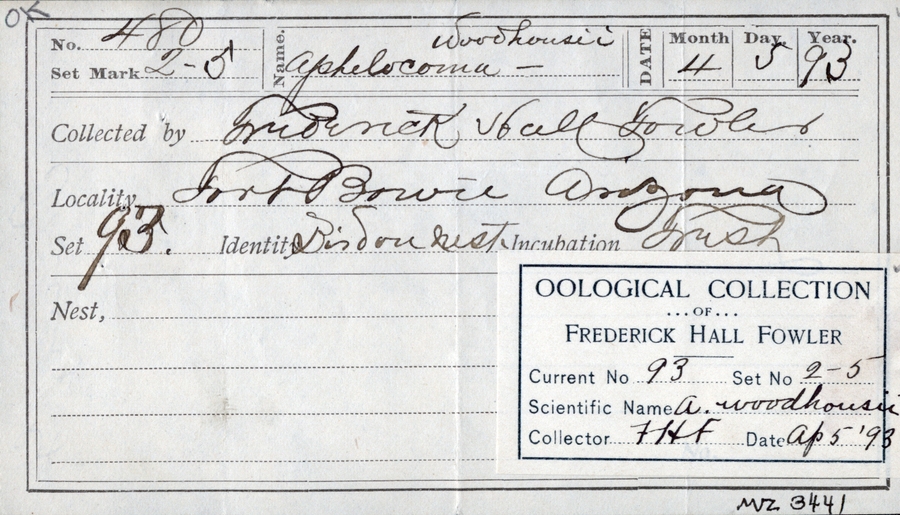 OK
No. 480 Name. Aphelocoma – Woodhousii DATE Month 4 Day 5 Year. 93
Set Mark 2-5
Collected by Frederick Hall Fowler
Locality Fort Bowie Arizona
Set 93. Identity Bird on nest Incubation Fresh
Nest,
OOLOGICAL COLLECTION
...OF...
FREDERICK HALL FOWLER
Current No 93 Set No 2-5
Scientific Name A. woodhousii
Collector FHF Date Ap 5 '93
MVZ 3441